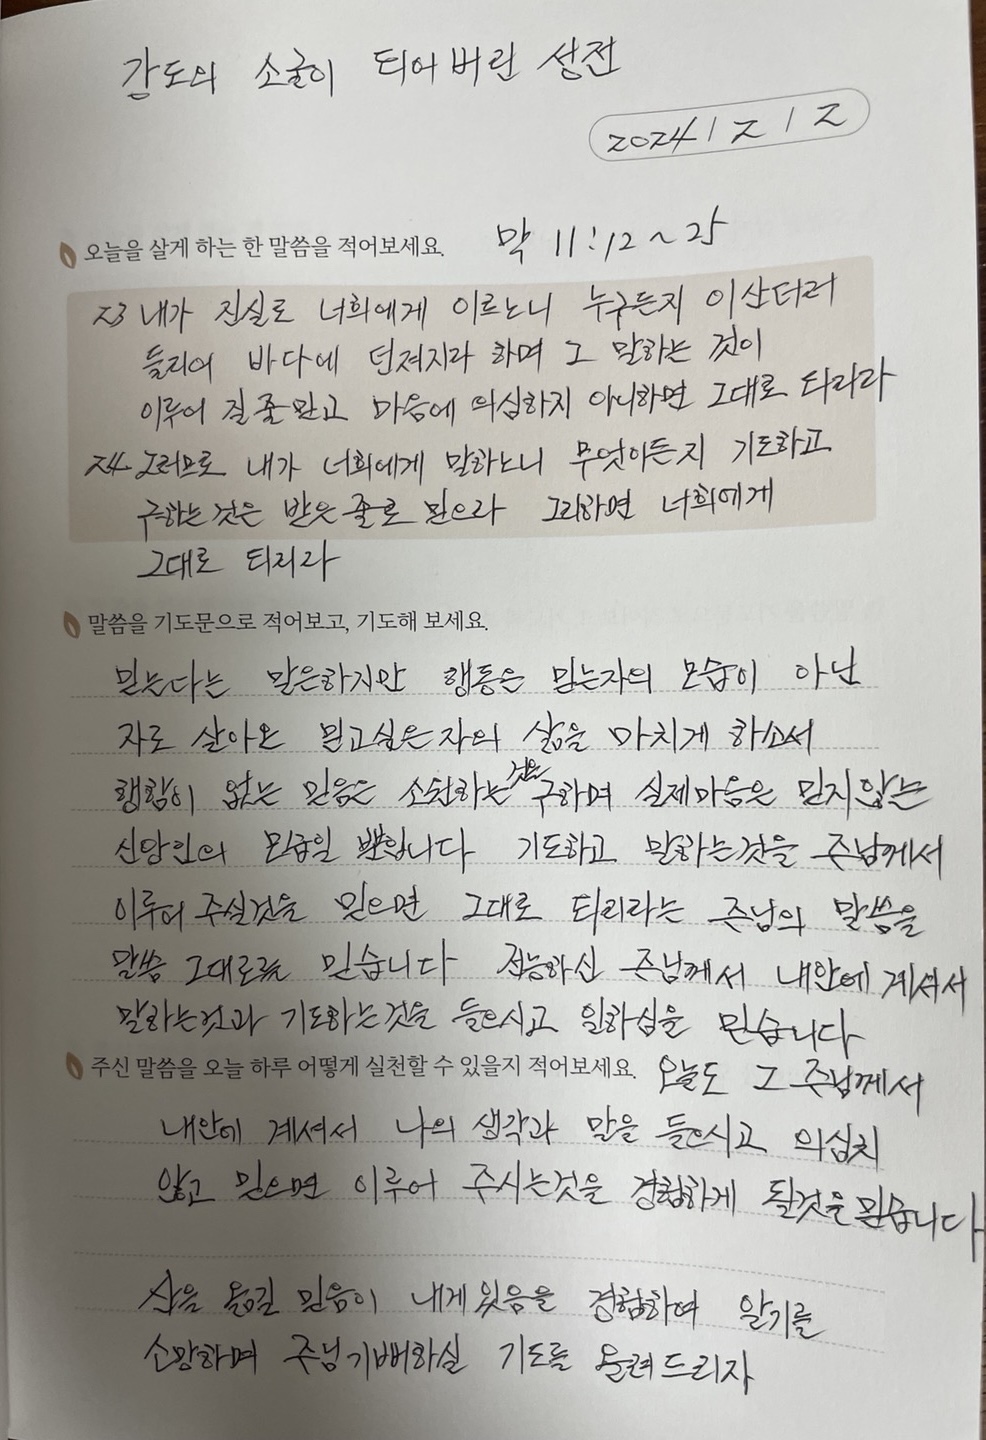 강도의 소굴이 되어버린 성전
2024 / 2 / 2
오늘을 살게 하는 한 말씀을 적어보세요. 막 11:12~25
23 내가 진실로 너희에게 이르노니 누구든지 이 산더러
들리어 바다에 던져지라 하며 그 말하는 것이
이루어 질 줄 믿고 마음에 의심하지 아니하면 그대로 되리라
24 그러므로 내가 너희에게 말하노니 무엇이든지 기도하고
구하는 것은 받은 줄로 믿으라 그리하면 너희에게
그대로 되리라
말씀을 기도문으로 적어보고, 기도해 보세요.
믿는다는 말은하지만 행동은 믿는자의 모습이 아닌
자로 살아온 믿고싶은 자의 삶을 마치게 하소서
행함이 없는 믿음은 소원하는 것은 구하며 실제마음은 믿지않는
신앙인의 모습일 뿐입니다 기도하고 말하는것을 주님께서
이루어 주실것을 믿으면 그대로 되리라는 주님의 말씀을
말씀 그대로를 믿습니다 전능하신 주님께서 내안에 계셔서
말하는것과 기도하는것을 들으시고 일하심을 믿습니다
주신 말씀을 오늘 하루 어떻게 실천할 수 있을지 적어보세요. 오늘도 그 주님께서
내안에 계셔서 나의 생각과 말을 들으시고 의심치
않고 믿으면 이루어 주시는것을 경험하게 될것을 믿습니다
산을 옮길 믿음이 내게 있음을 경험하여 알기를
소망하며 주님 기뻐하실 기도를 올려드리자